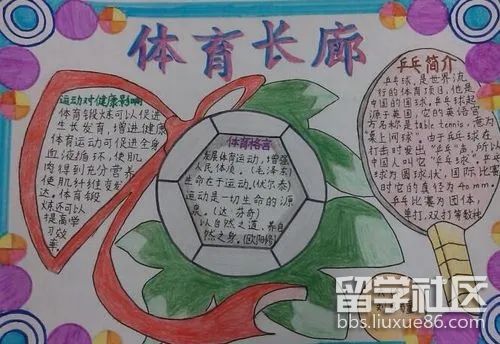 体育长廊
运动对健康影响
体育锻炼可以促进
生长发育，增进健康
体育运动可促进全身
血液循环，使肌
肉得到充分营养
使肌纤维变发
达。体育锻
炼还可以
提高学
习效
率
体育格言
发展体育运动，增强
人民体质。（毛泽东）
生命在于运动。（伏尔泰）
运动是一切生命的源
泉。（达·芬奇）
以自然之道，养自
然之身。（欧阳修）
乒乓简介
乒乓球，是世界流
行的体育项目，也是
中国的国球。乒乓球起
源于英国，它的英语官
方名称是"table tennis"，意为
"桌上网球"。由于乒乓球在
打击时发出"乒乓"声，所以
中国人叫它"乒乓球"。乒乓
球为圆球状，国际比赛
时它的直径为40mm，
乒乓比赛为团体，
单打，双打等数种
留学社区
bbs.liuxue86.com